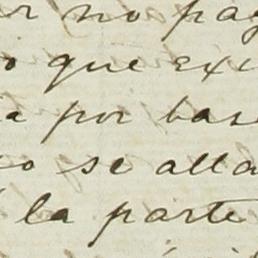 r no pag
o que exi
a por bas
o se alla
la parte